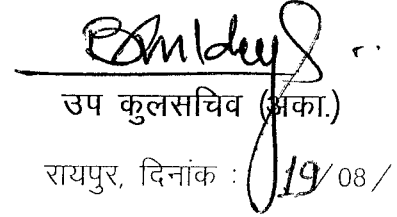 उप कुलसचिव (अका.)
रायपुर, दिनांक : 19/08/